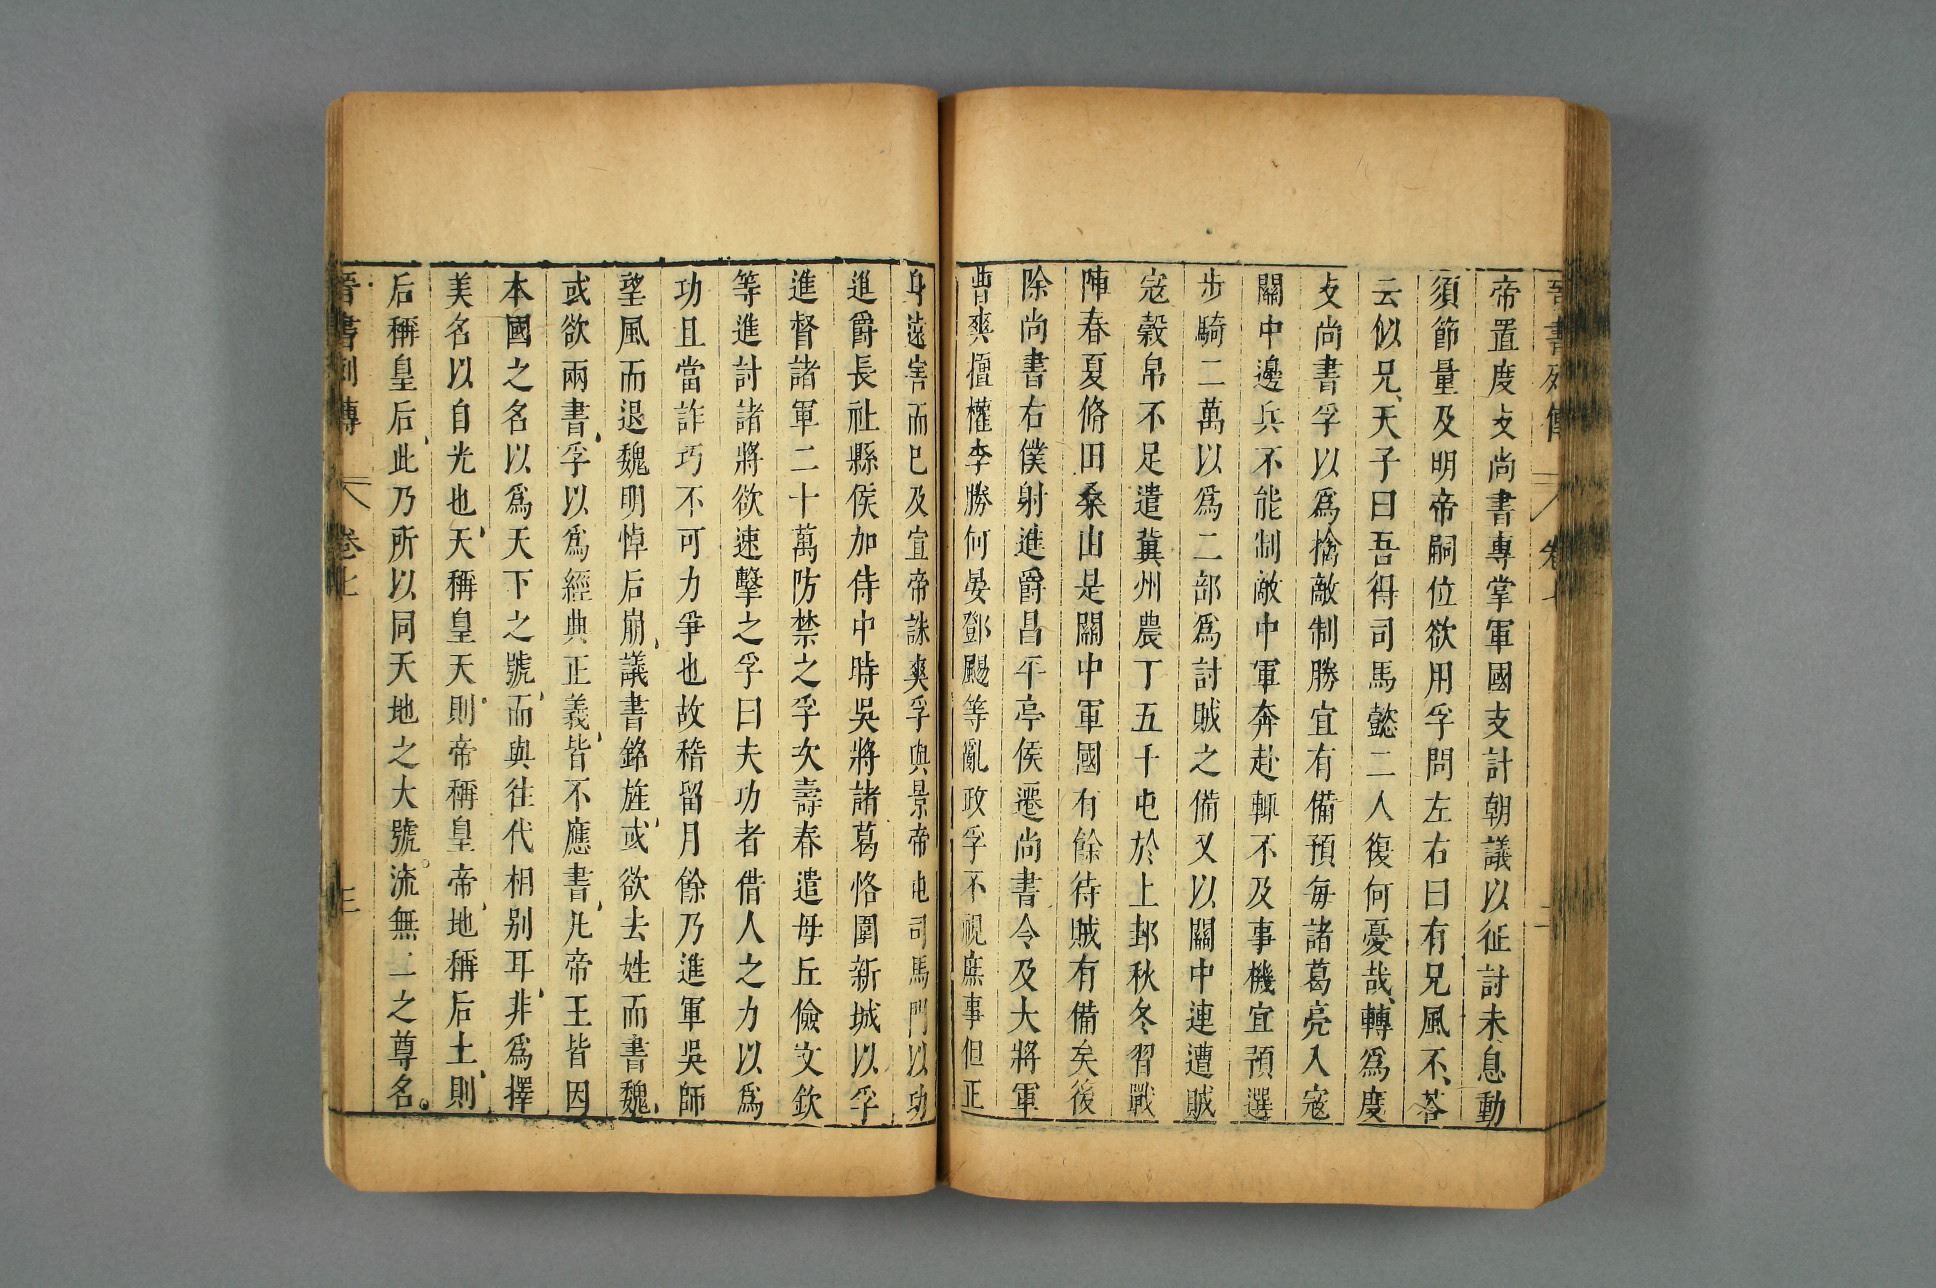 晉書列傳 卷七 二
帝置度攴尚書專掌軍國支計朝議以征討未息動
須節量及明帝嗣位欲用孚問左右曰有兄風不、荅
云似兄、天子曰吾得司馬懿二人復何憂哉、轉爲度
攴尚書孚以爲擒敵制勝宜有備預每諸葛亮入寇
關中邊兵不能制敵中軍奔赴輒不及事機宜預選
步騎二萬以爲二部爲討賊之備又以關中連遭賊
寇穀帛不足遣冀州農丁五千屯於上邽秋冬習戰
陣春夏脩田桑由是關中軍國有餘待賊有備矣後
除尚書右僕射進爵昌平亭侯遷尚書令及大將軍
曹爽擅權李勝何晏鄧颺等亂政孚不視庶事但正
身遠害而已及宣帝誅爽孚與景帝屯司馬門以功
進爵長社縣侯加侍中時吳將諸葛恪圍新城以孚
進督諸軍二十萬防禁之孚次壽春遣毋丘儉文欽
等進討諸將欲速擊之孚曰夫功者借人之力以爲
功且當詐巧不可力爭也故稽留月餘乃進軍吳師
望風而退魏明悼后崩、議書銘旌、或欲去姓而書魏、
或欲兩書、孚以爲經典正義、皆不應書、凡帝王皆因
本國之名以爲天下之號、而與往代相別耳、非爲擇
美名以自光也、天稱皇天、則帝稱皇帝、地稱后土、則
后稱皇后、此乃所以同天地之大號。流無二之尊名。
晉書列傳 卷七 三